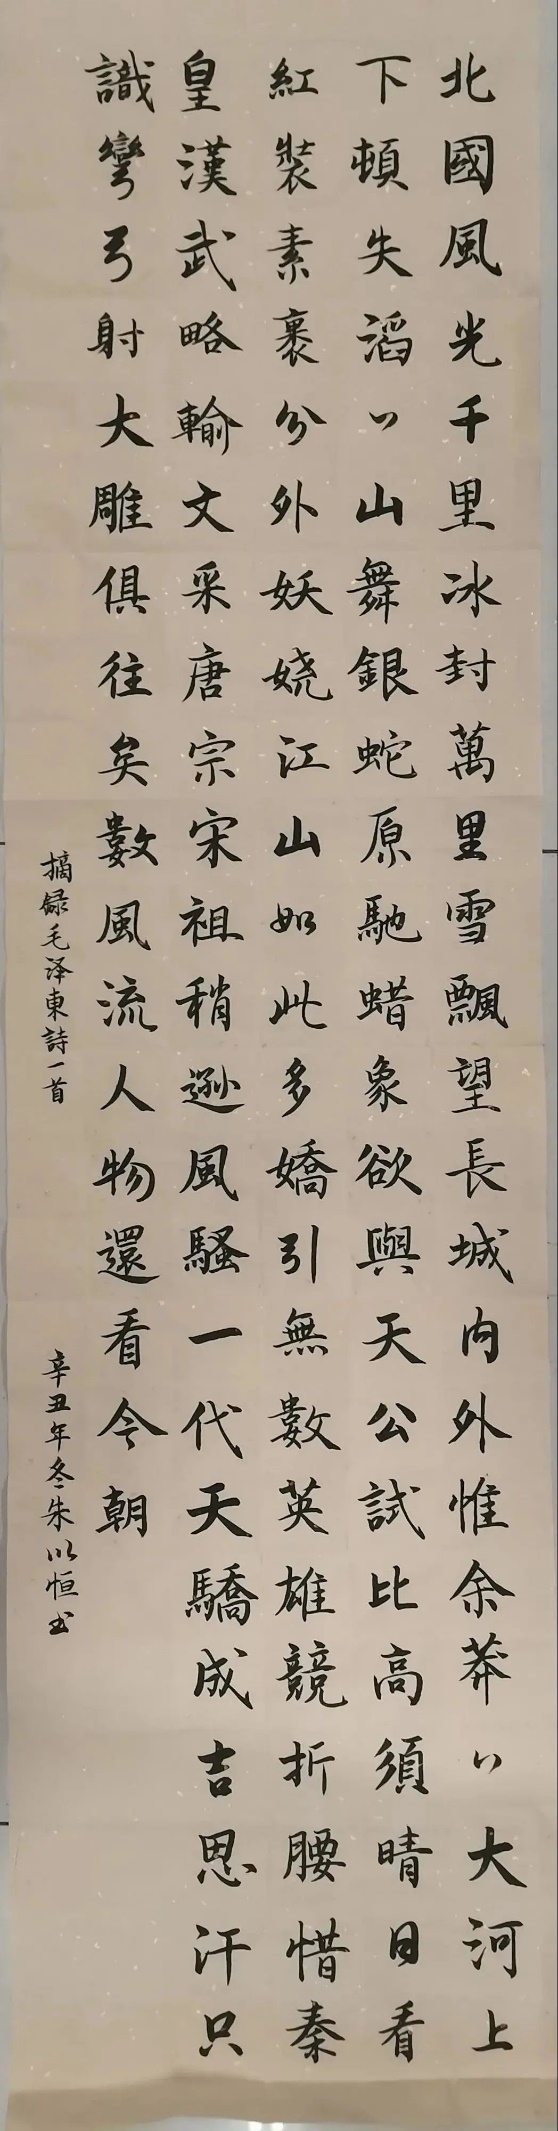 北國風光千里冰封萬里雪飄望長城内外惟余莽ㄑ大河上
下頓失滔ㄑ山舞銀蛇原馳蜡象欲與天公試比高須晴日看
紅裝素裹分外妖娆江山如此多嬌引無數英雄競折腰惜秦
皇漢武略輸文采唐宗宋祖稍遜風騷一代天驕成吉思汗只
識彎弓射大雕俱往矣數風流人物還看今朝
摘録毛泽東詩一首
辛丑年冬朱以恒书